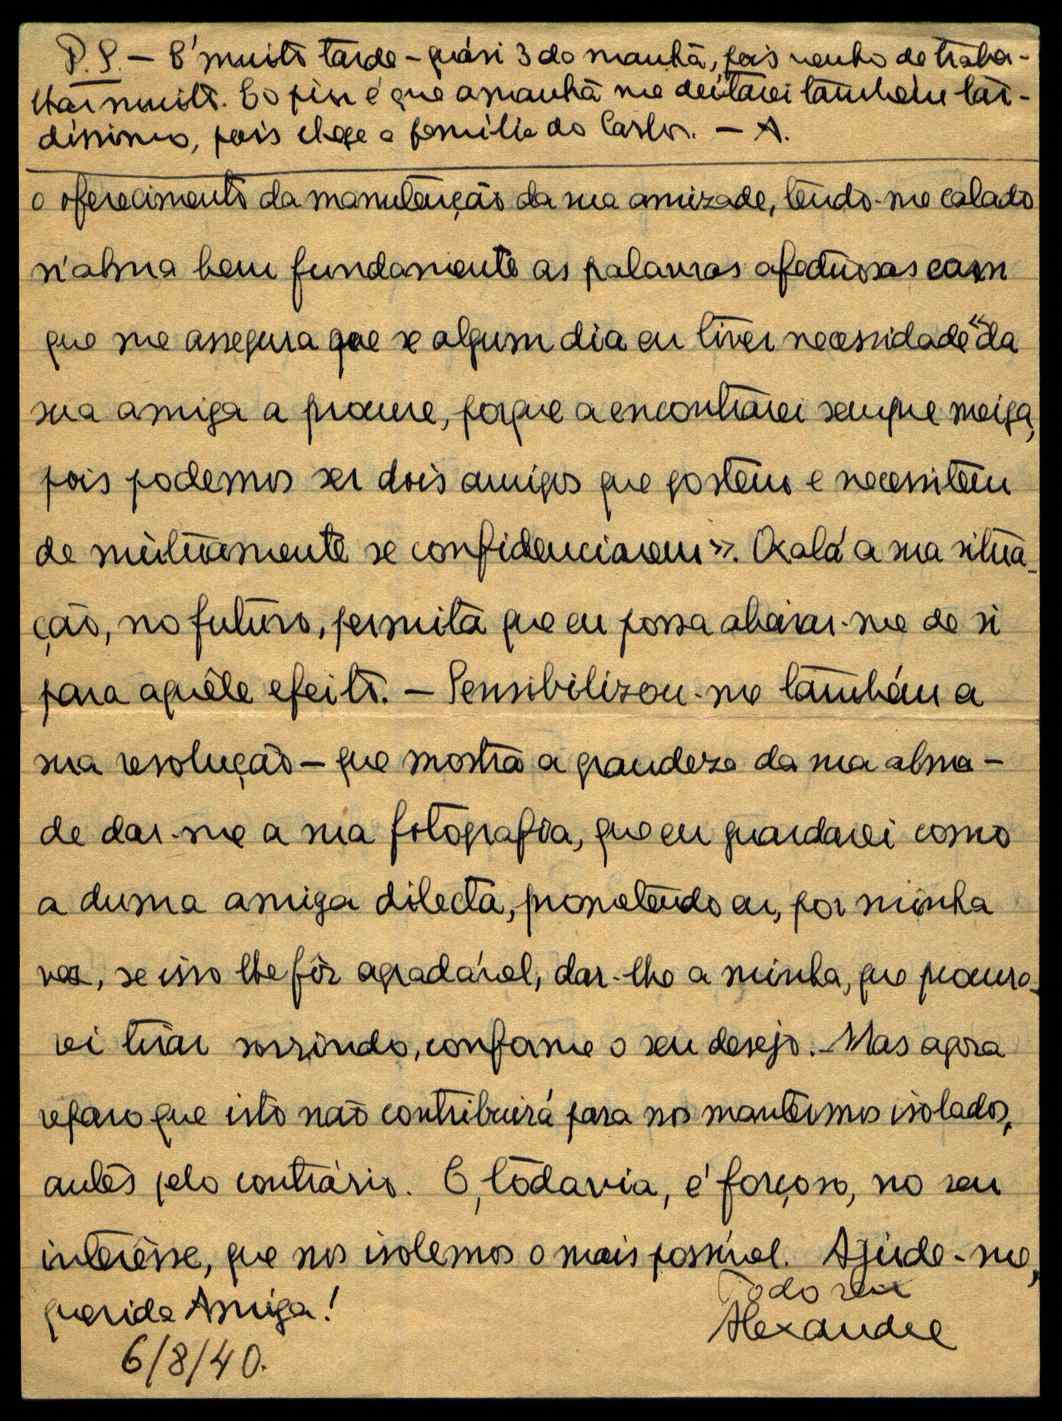 P.S. — É muito tarde - quási 3 da manhã, pois venho de traba-
lhar muito. E o pior é que amanhã me deitarei também tar-
díssimo, pois chega a família do Carlos. — A.
o oferecimento da manutenção da sua amizade, tendo-me calado
n'alma bem fundamente as palavras afectuosas com
que me assegura que se algum dia eu tiver necessidade «da
sua amiga a procure, porque a encontrarei sempre meiga,
pois podemos ser dois amigos que gostem e necessitem
de mùtuamente se confidenciarem». Oxalá a sua situa-
ção, no futuro, permita que eu possa abeirar-me de si
para aquêle efeito. — Sensibilizou-me também a
sua resolução — que mostra a grandeza da sua alma —
de dar-me a sua fotografia, que eu guardarei como
a duma amiga dilecta, prometendo eu, por minha
vez, se isso lhe fôr agradável, dar-lhe a minha, que procura-
rei tirar sorrindo, conforme o seu desejo. — Mas agora
reparo que isto não contribuirá para nos mantermos isolados,
antes pelo contrário. E, todavia, é forçoso, no seu
interêsse, que nos isolemos o mais possível. Ajude-me,
querida Amiga!
Todo seu
Alexandre
6/8/40.